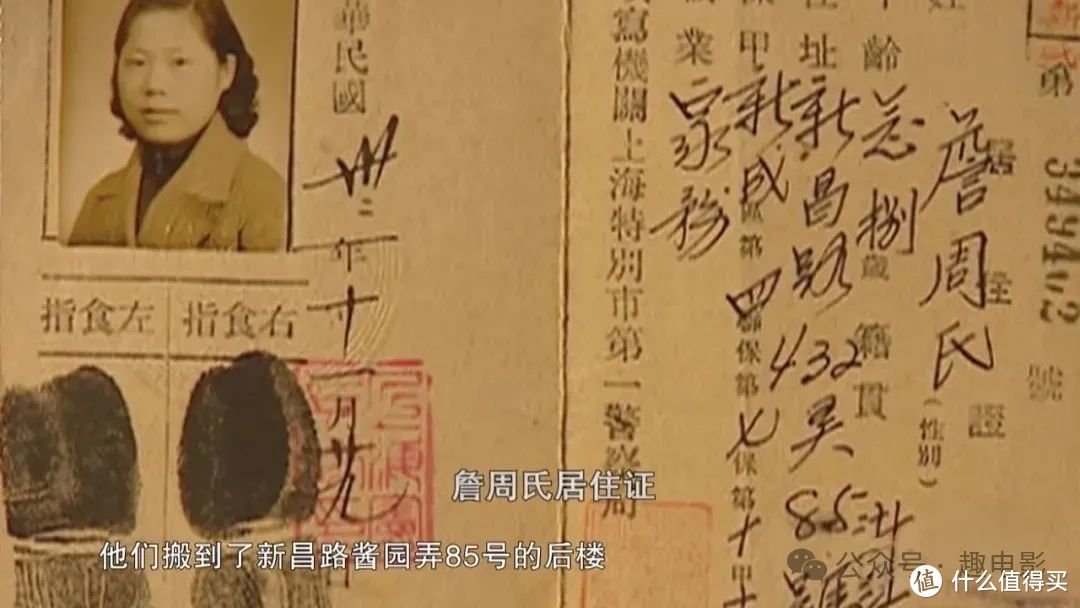 第 349402 號
居住證
姓 詹周氏（性別）
齡 念捌歲 籍貫
住址 新昌路 432 85
甲 新成區第四聯保第七保第十甲
業 家務
寫機關上海特別市第一警察局
華民國卅二年十一月廿九
指食右
指食左
詹周氏居住证
他们搬到了新昌路酱园弄85号的后楼
公众号·趣电影
值 什么值得买